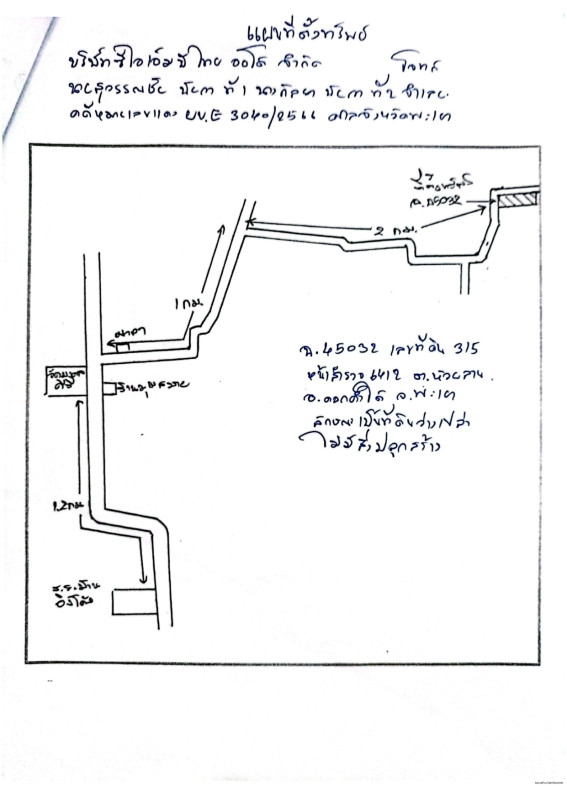 แผนที่ตั้งทรัพย์
บริษัท ซีไอเอ็มบี ไทย ออโต้ จำกัด โจทก์
นายสุวรรณชัย ที่ 1 ที่ 2 จำเลย
คดีหมายเลขแดง ผบ.E 3040/2566 ศาลจังหวัดพะเยา
ที่ตั้งทรัพย์
ฉ.45032
2 กม.
1 กม.
ศาลา
ฉ.45032 เลขที่ดิน 315
หน้าสำรวจ 6412 ต.ห้วยลาน
อ.ดอกคำใต้ จ.พะเยา
ลักษณะเป็นที่ดินว่างเปล่า
ไม่มีสิ่งปลูกสร้าง
1.2 กม.
ร.ร.บ้าน